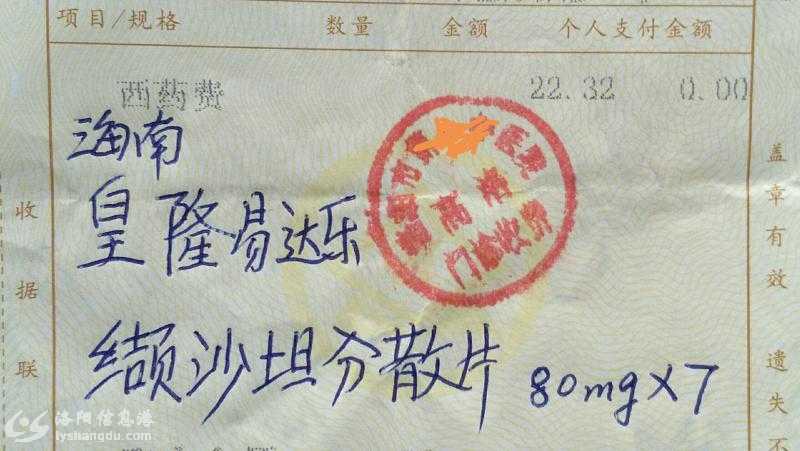 项目/规格 数量 金额 个人支付金额
西药费 22.32 0.00
海南
皇隆易达乐
缬沙坦分散片 80mg×7
市第 医院
高 港
门诊收费
收据联
盖章有效 遗失不
洛阳信息港
lyshangdu.com